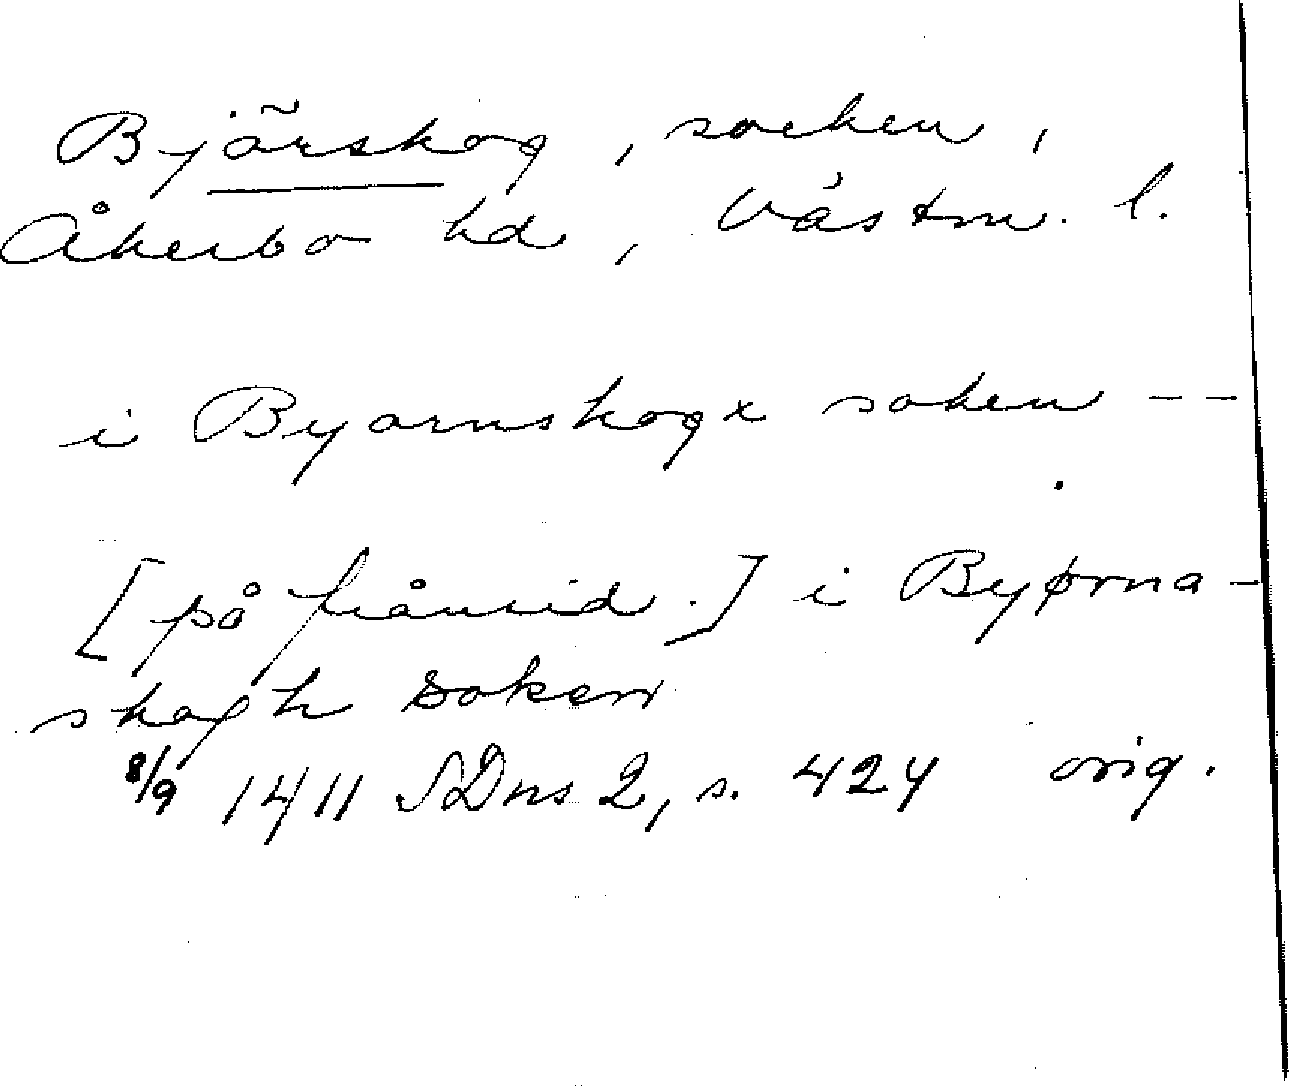 Bjärskog, socken,
Åkerbo hd, Västm. l.
i Byarnskogx soken --
[på frånsid.] i Byørna-
skogh soken
8/9 1411 SDns 2, s. 424 orig.